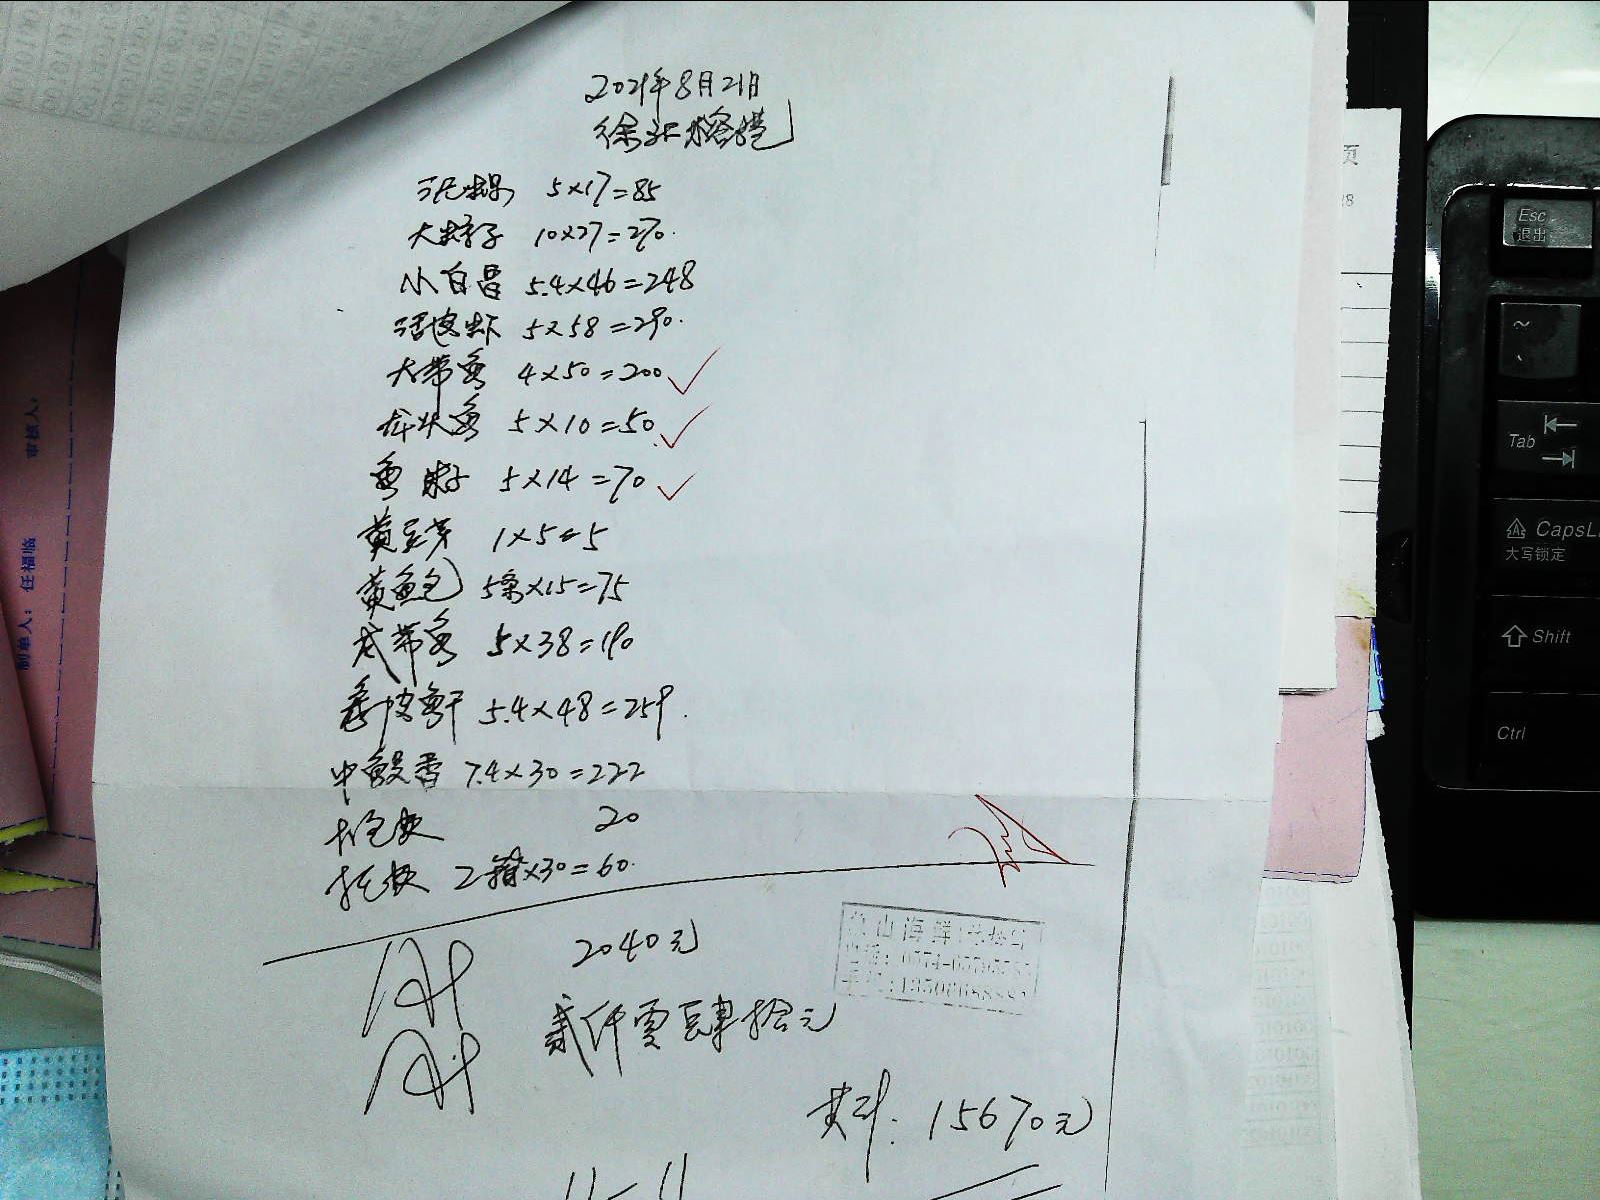 2021年8月21日
徐汇榕港
泥螺 5×17=85
大蛏子 10×27=270.
小白昌 5.4×46=248
活皮虾 5×58=290.
大带鱼 4×50=200
龙头鱼 5×10=50
鱼籽 5×14=70
黄豆芽 1×5=5
黄鱼包 5条×15=75
龙带鱼 5×38=190
5.4×48=259.
中鳗香 7.4×30=222
打包费 20
托费 2箱×30=60.
2040元
贰仟零肆拾元
共计:15670元
山海鲜
制单人:任福临
审核人:
页
Esc
退出
~
Tab
CapsL
大写锁定
Shift
Ctrl